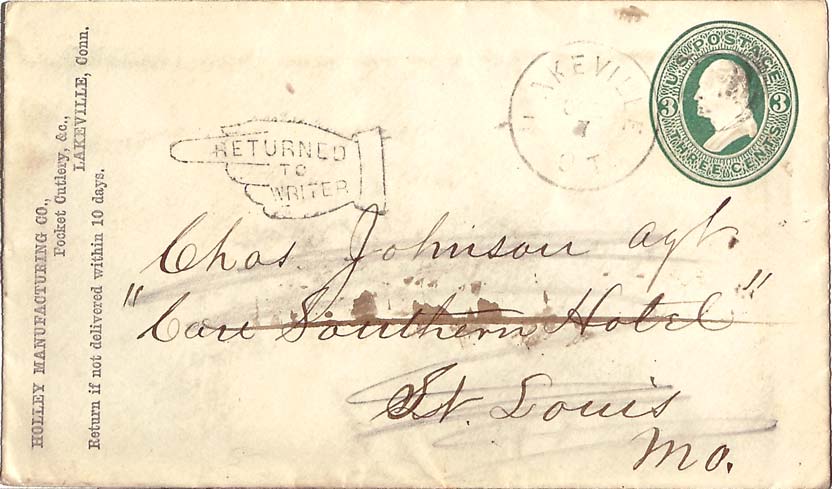 HOLLEY MANUFACTURING CO.,
Pocket Cutlery, &c.,
LAKEVILLE, Conn.
Return if not delivered within 10 days.
RETURNED
TO
WRITER
LAKEVILLE
CT
U.S. POSTAGE
3 3
THREE CENTS
Chas. Johnson agt.
"Care Southern Hotel"
St. Louis
Mo.